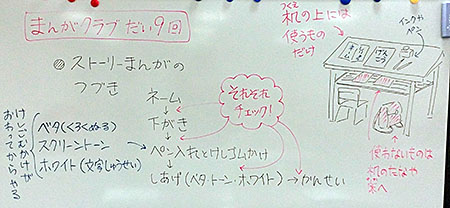 まんがクラブ だい9回
◎ ストーリーまんがの
つづき
ネーム
↓
下がき
↓
ペン入れとけしゴムかけ
↓
しあげ(ベタ・トーン・ホワイト)→かんせい
それぞれ
チェック!
けしごむかけが
おわってからやる
ベタ(くろくぬる)
スクリーントーン
ホワイト(文字しゅうせい)
つくえ
机の上には
使うもの
だけ
インクや
ペン
げんこう
使わないものは
机のたなや